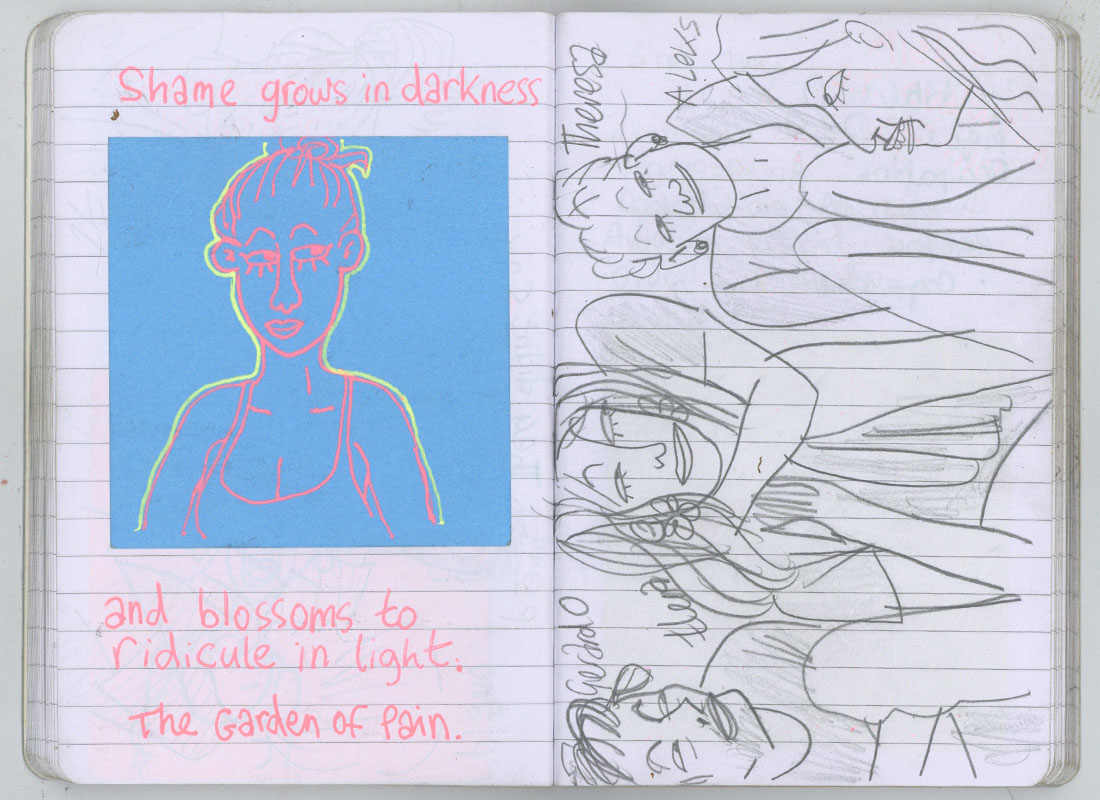 Shame grows in darkness
and blossoms to
ridicule in light.
The Garden of Pain.
Theresa
ALeks
GerardO